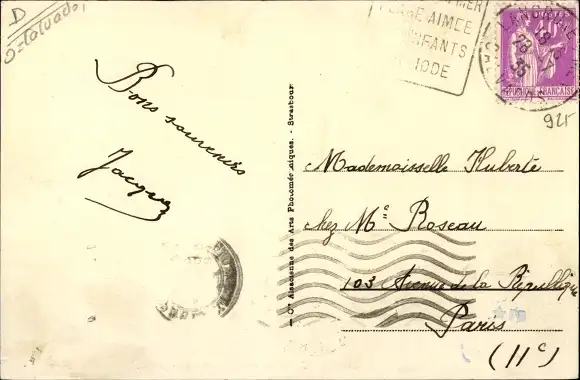 D
PLAGE AIMEE
ENFANTS
IODE
18
28 -7
35
CALVADOS
REPUBLIQUE FRANÇAISE
925
Bons souvenirs
Jacques
— Cie Alsacienne des Arts Photomécaniques. - Strasbourg
Mademoisselle Huberte
chez Me Roseau
103 Avenue de la République
Paris
(11e)